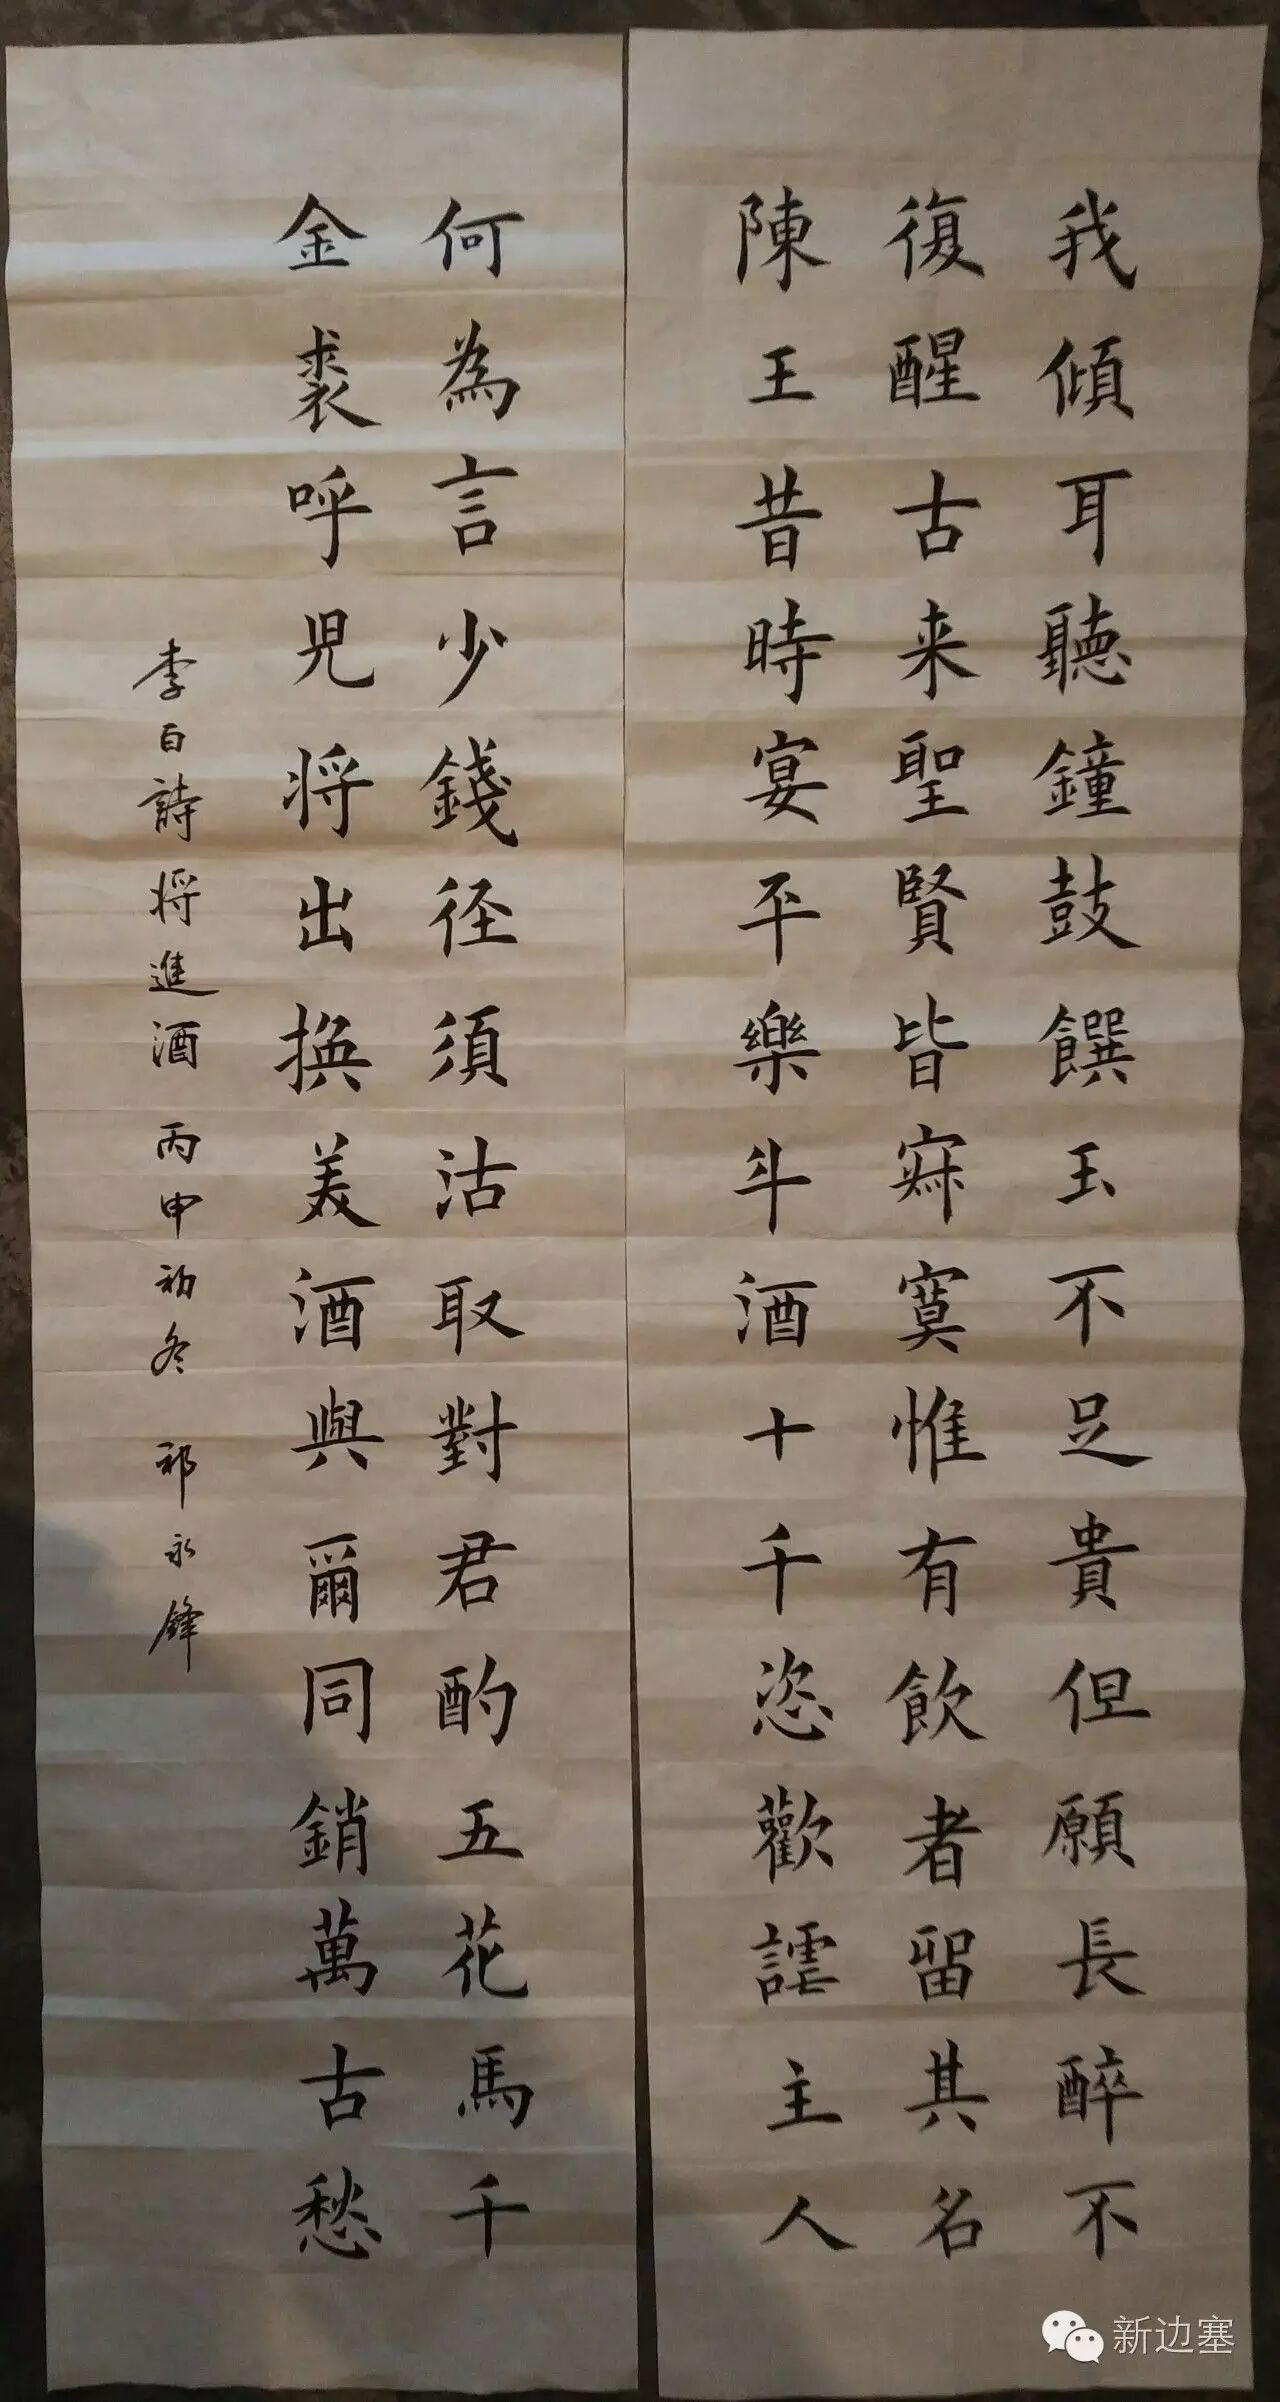 我傾耳聽鐘鼓饌玉不足貴但願長醉不
復醒古来聖賢皆寂寞惟有飲者留其名
陳王昔時宴平樂斗酒十千恣歡謔主人
何為言少錢径須沽取對君酌五花馬千
金裘呼兒将出換美酒與爾同銷萬古愁
李白詩将進酒 丙申初冬 祁永鋒
新边塞